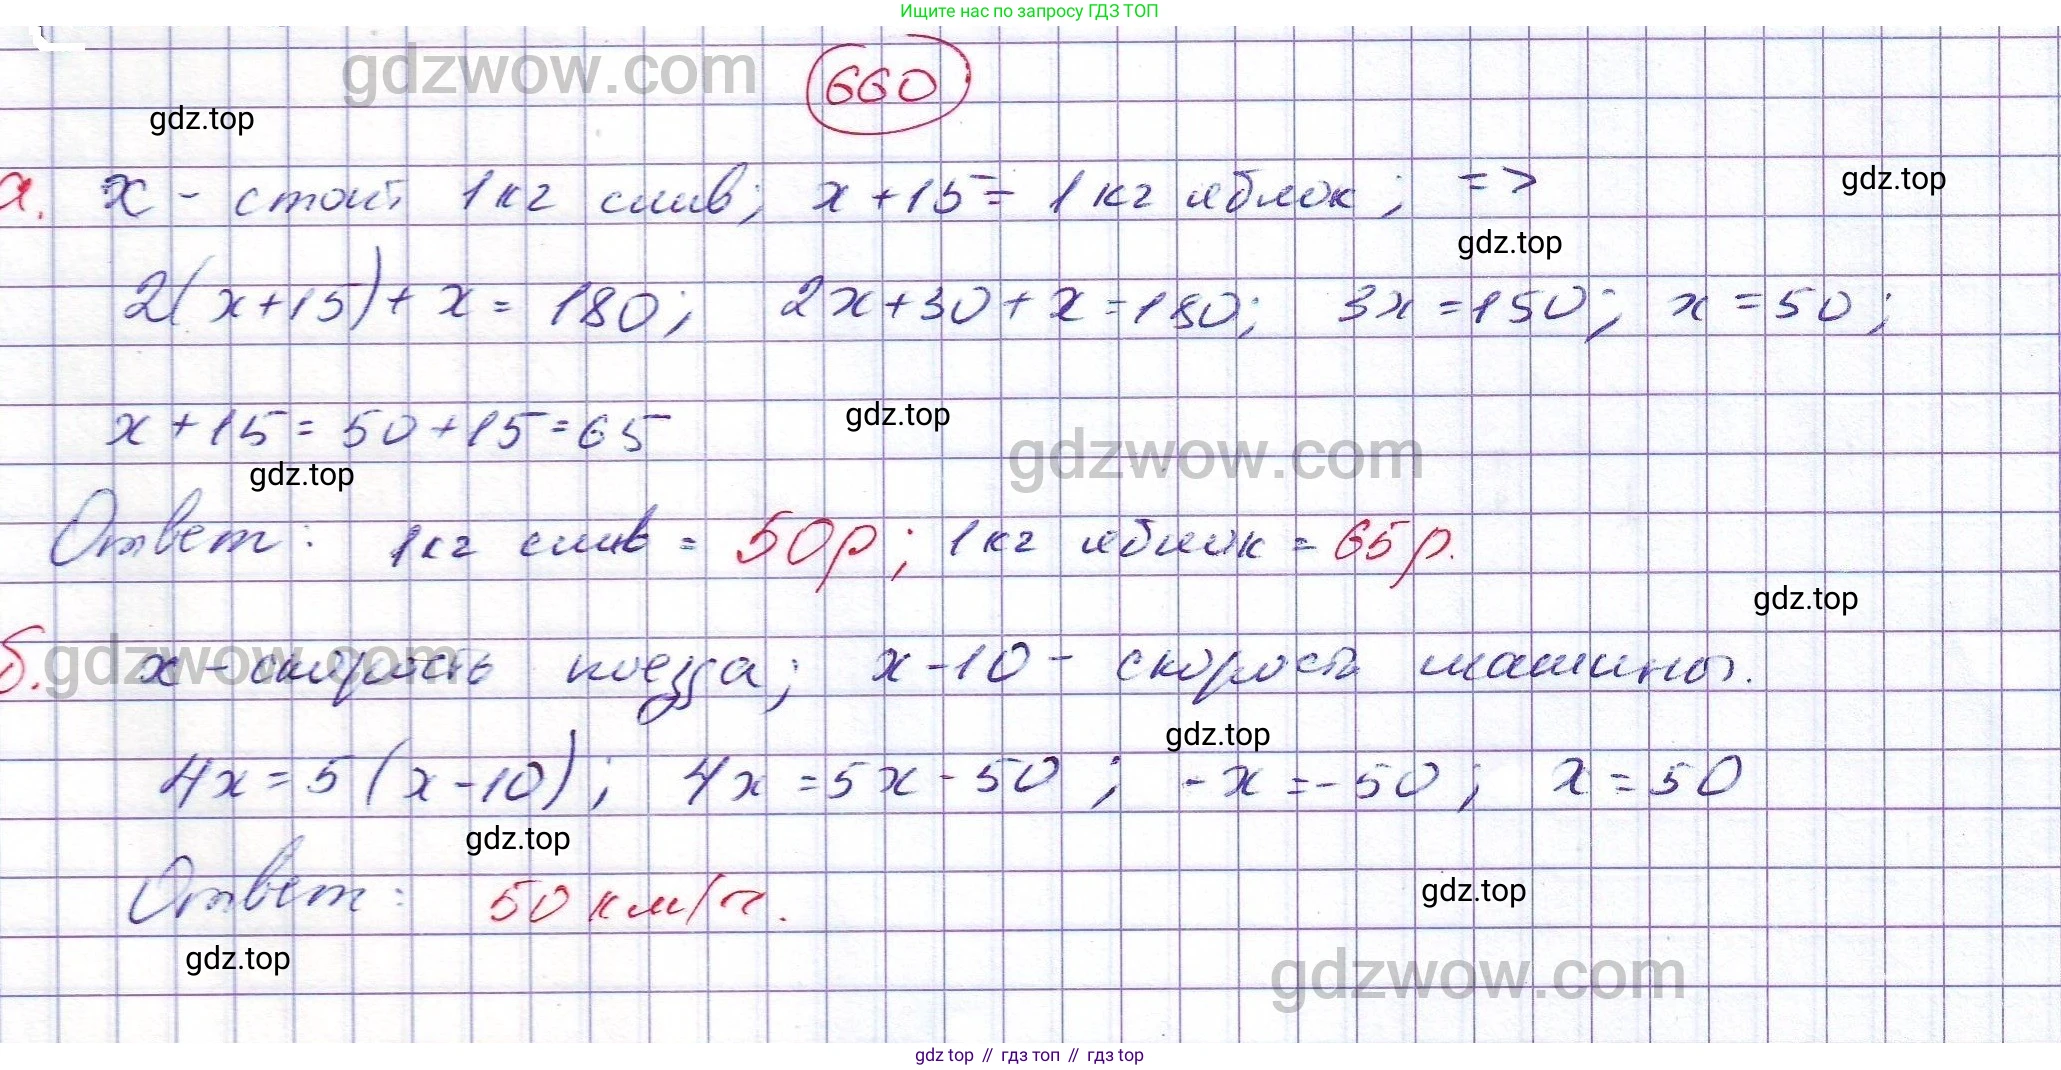 Ищите нас по запросу ГДЗ ТОП
gdzwow.com
660
gdz.top
а. x - стоит 1 кг слив; x + 15 = 1 кг яблок; =>
gdz.top
gdz.top
2(x+15) + x = 180; 2x + 30 + x = 180; 3x = 150; x = 50;
x + 15 = 50 + 15 = 65
gdz.top
gdzwow.com
gdz.top
Ответ: 1 кг слив = 50р; 1 кг яблок = 65р.
gdz.top
gdzwow.com
б. x - скорость поезда; x - 10 - скорость машины.
gdz.top
4x = 5(x - 10); 4x = 5x - 50; -x = -50; x = 50
gdz.top
Ответ: 50 км/ч.
gdz.top
gdz.top
gdzwow.com
gdz top // гдз топ // gdz top